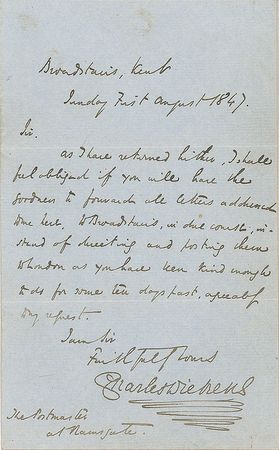 Broadstairs, Kent
Sunday First August 1847.
Sir.
as I have returned hither, I shall
feel obliged if you will have the
goodness to forward all letters addressed
to me here, to Broadstairs, in due course, in-
stead of directing and posting them
to London as you have been kind enough
to do for some ten days past, agreeably
to my request.
I am Sir
Faithfully Yours
Charles Dickens
The Postmaster
at Ramsgate.